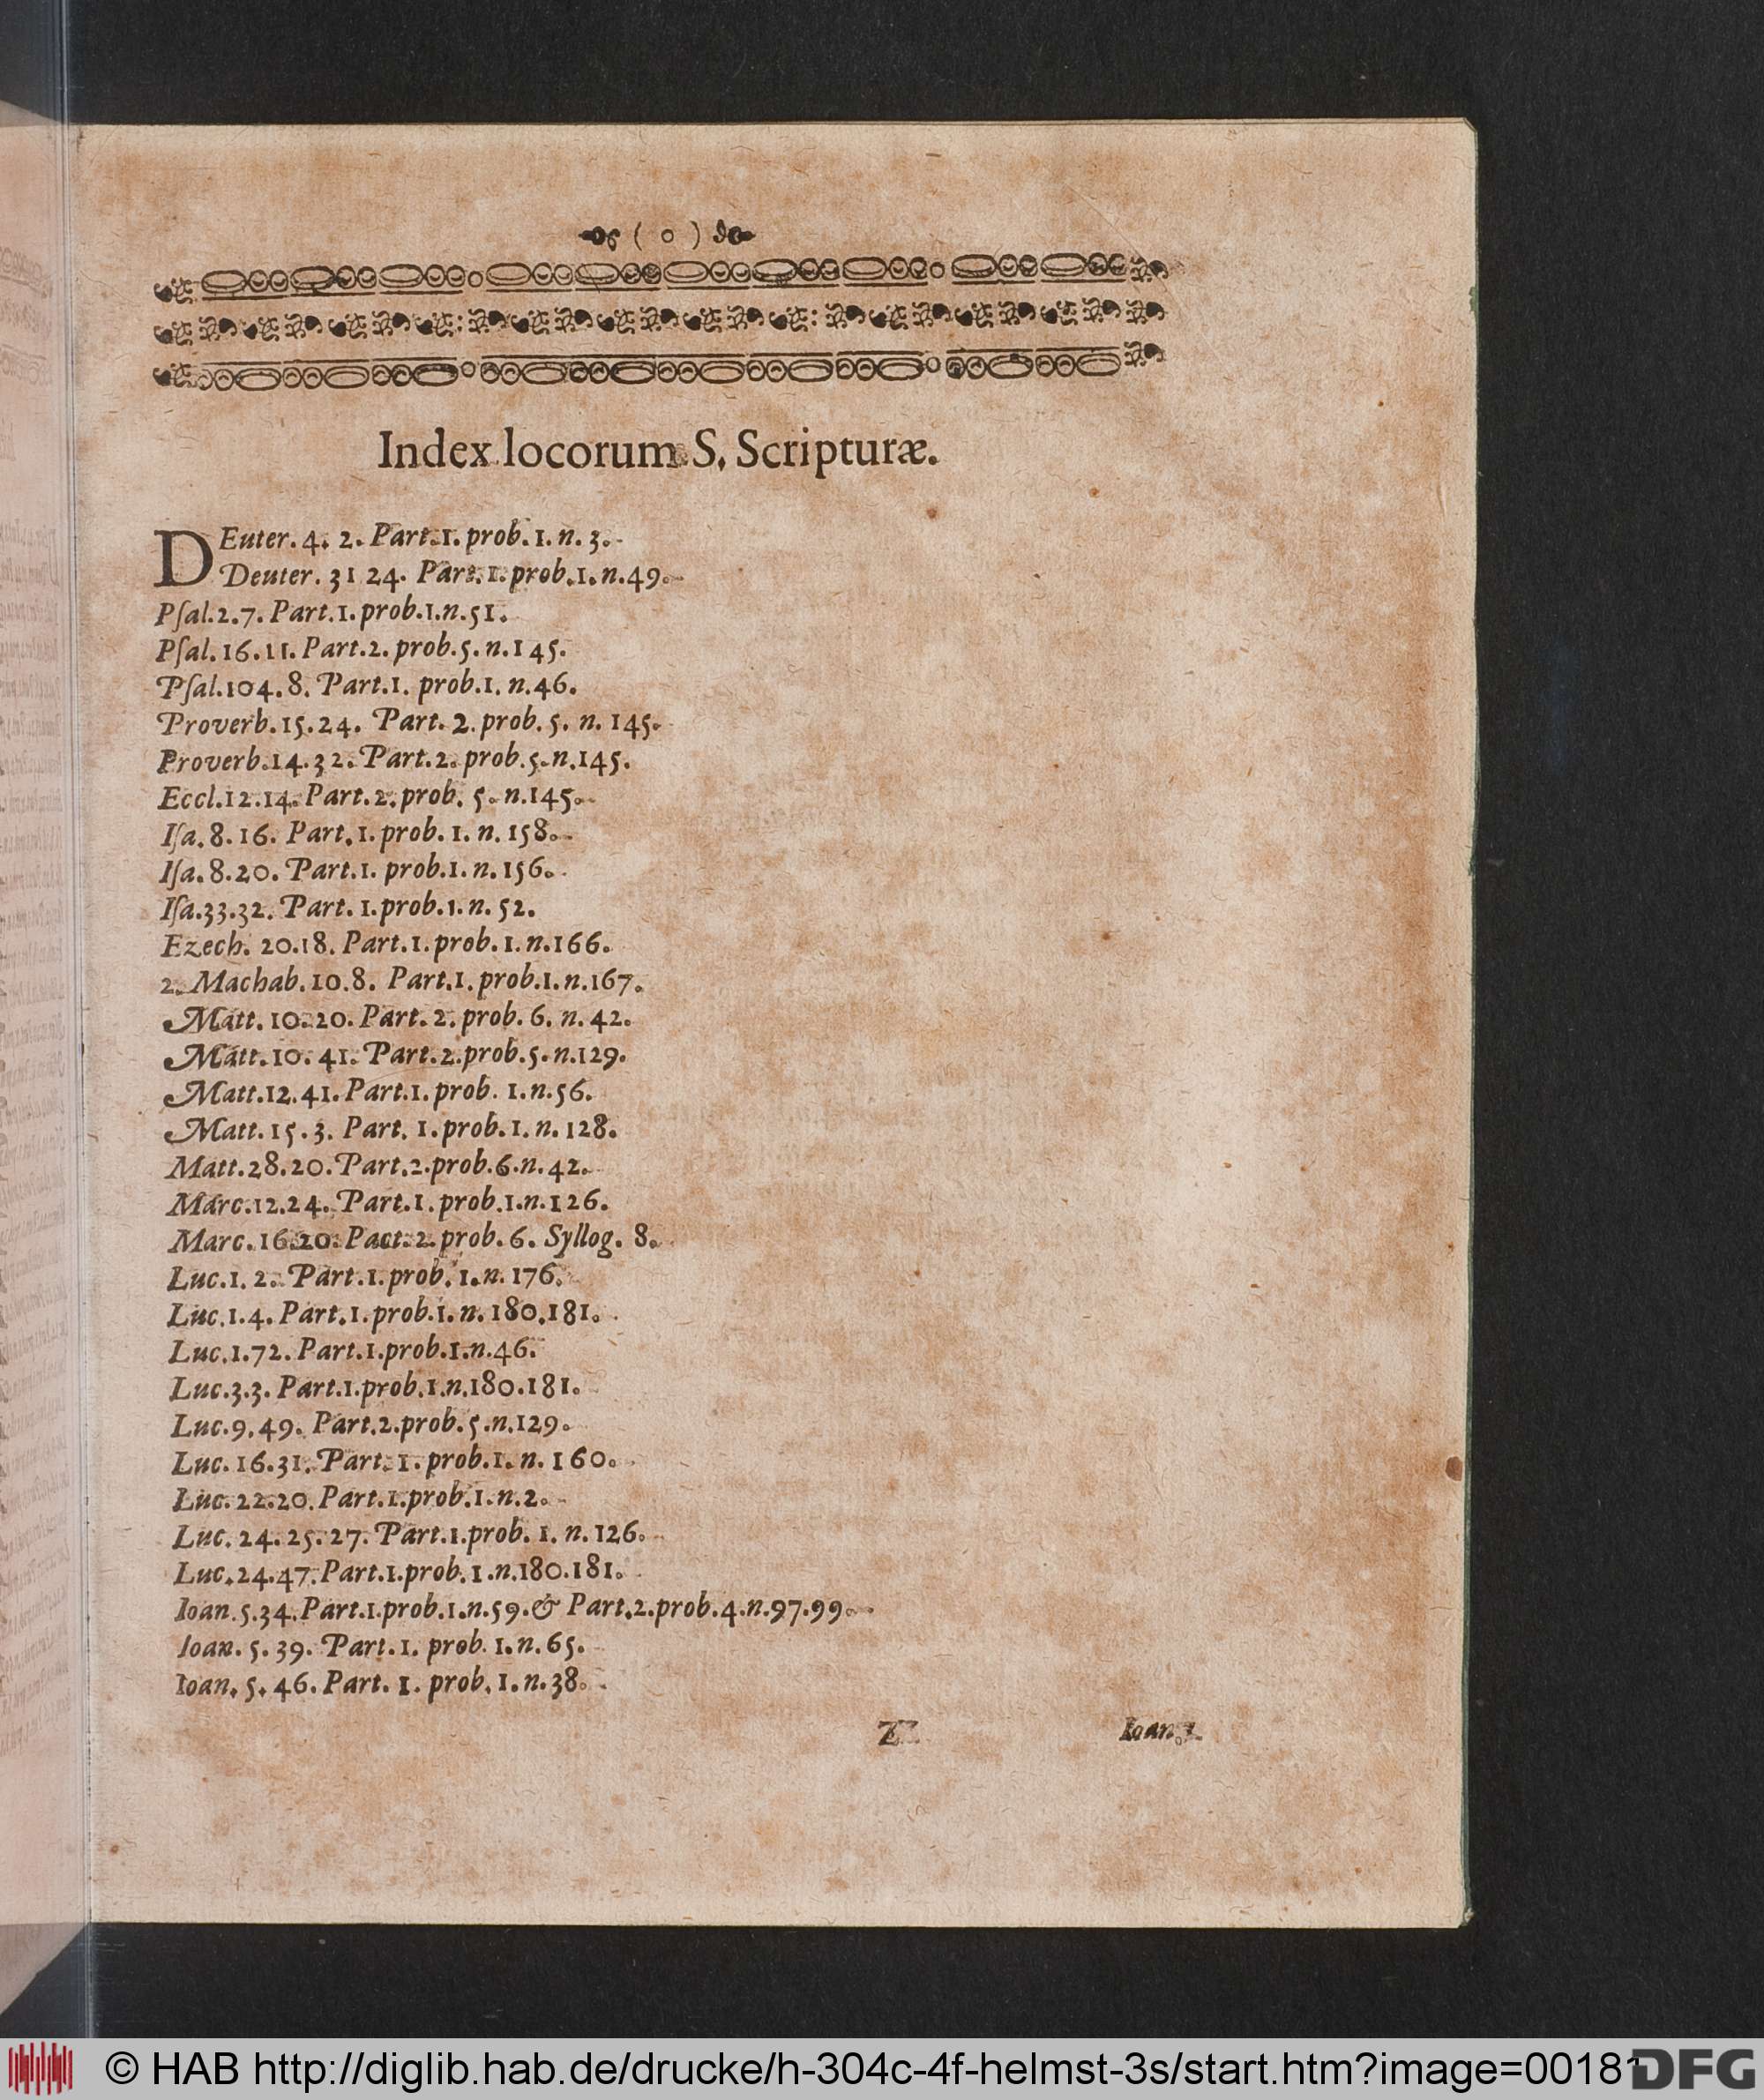 ( o )
Index locorum S. Scripturæ.
DEuter. 4. 2. Part. 1. prob. 1. n. 3.
Deuter. 31 24. Part. 1. prob. 1. n. 49.
Pſal. 2. 7. Part. 1. prob. 1. n. 51.
Pſal. 16. 11. Part. 2. prob. 5. n. 145.
Pſal. 104. 8. Part. 1. prob. 1. n. 46.
Proverb. 15. 24. Part. 2. prob. 5. n. 145.
Proverb. 14. 32. Part. 2. prob. 5. n. 145.
Eccl. 12. 14. Part. 2. prob. 5. n. 145.
Iſa. 8. 16. Part. 1. prob. 1. n. 158.
Iſa. 8. 20. Part. 1. prob. 1. n. 156.
Iſa. 33. 32. Part. 1. prob. 1. n. 52.
Ezech. 20. 18. Part. 1. prob. 1. n. 166.
2. Machab. 10. 8. Part. 1. prob. 1. n. 167.
Matt. 10. 20. Part. 2. prob. 6. n. 42.
Matt. 10. 41. Part. 2. prob. 5. n. 129.
Matt. 12. 41. Part. 1. prob. 1. n. 56.
Matt. 15. 3. Part. 1. prob. 1. n. 128.
Matt. 28. 20. Part. 2. prob. 6. n. 42.
Marc. 12. 24. Part. 1. prob. 1. n. 126.
Marc. 16. 20. Part. 2. prob. 6. Syllog. 8.
Luc. 1. 2. Part. 1. prob. 1. n. 176.
Luc. 1. 4. Part. 1. prob. 1. n. 180. 181.
Luc. 1. 72. Part. 1. prob. 1. n. 46.
Luc. 3. 3. Part. 1. prob. 1. n. 180. 181.
Luc. 9. 49. Part. 2. prob. 5. n. 129.
Luc. 16. 31. Part. 1. prob. 1. n. 160.
Luc. 22. 20. Part. 1. prob. 1. n. 2.
Luc. 24. 25. 27. Part. 1. prob. 1. n. 126.
Luc. 24. 47. Part. 1. prob. 1. n. 180. 181.
Ioan. 5. 34. Part. 1. prob. 1. n. 59. & Part. 2. prob. 4. n. 97. 99.
Ioan. 5. 39. Part. 1. prob. 1. n. 65.
Ioan. 5. 46. Part. 1. prob. 1. n. 38.
Z Ioan.
© HAB http://diglib.hab.de/drucke/h-304c-4f-helmst-3s/start.htm?image=00181
DFG